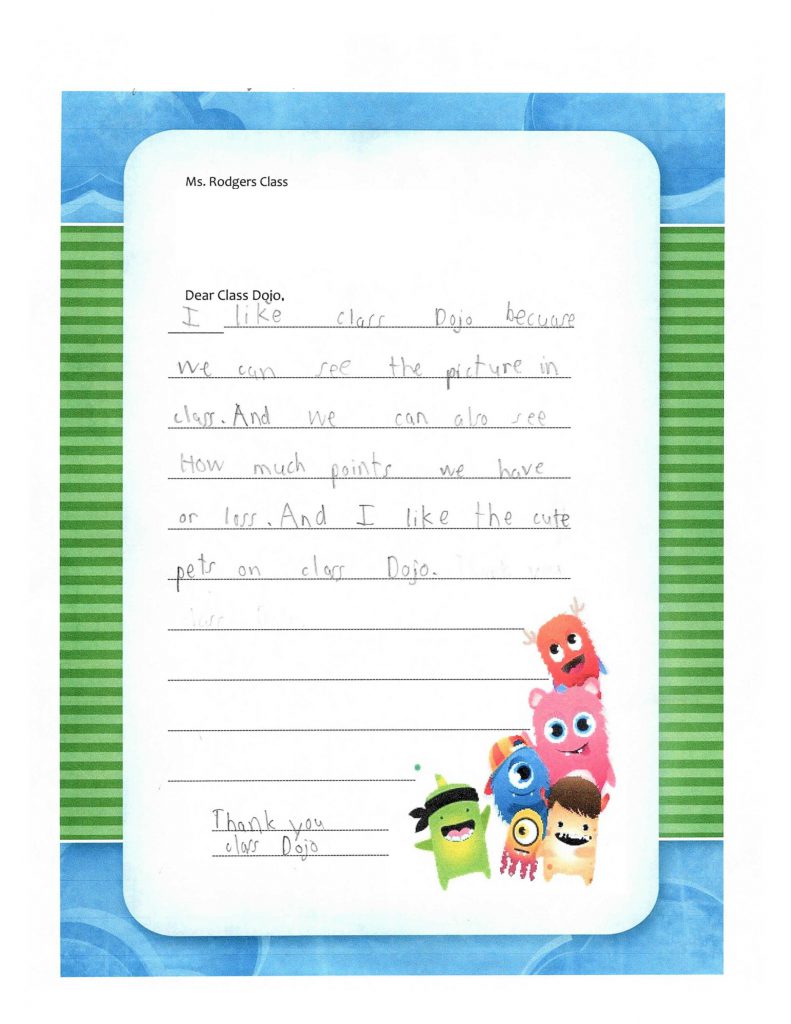 Ms. Rodgers Class
Dear Class Dojo,
I like class Dojo becuase
we can see the picture in
class. And we can also see
How much points we have
or loss. And I like the cute
pets on class Dojo. Thank you
class Dojo
Thank you
class Dojo